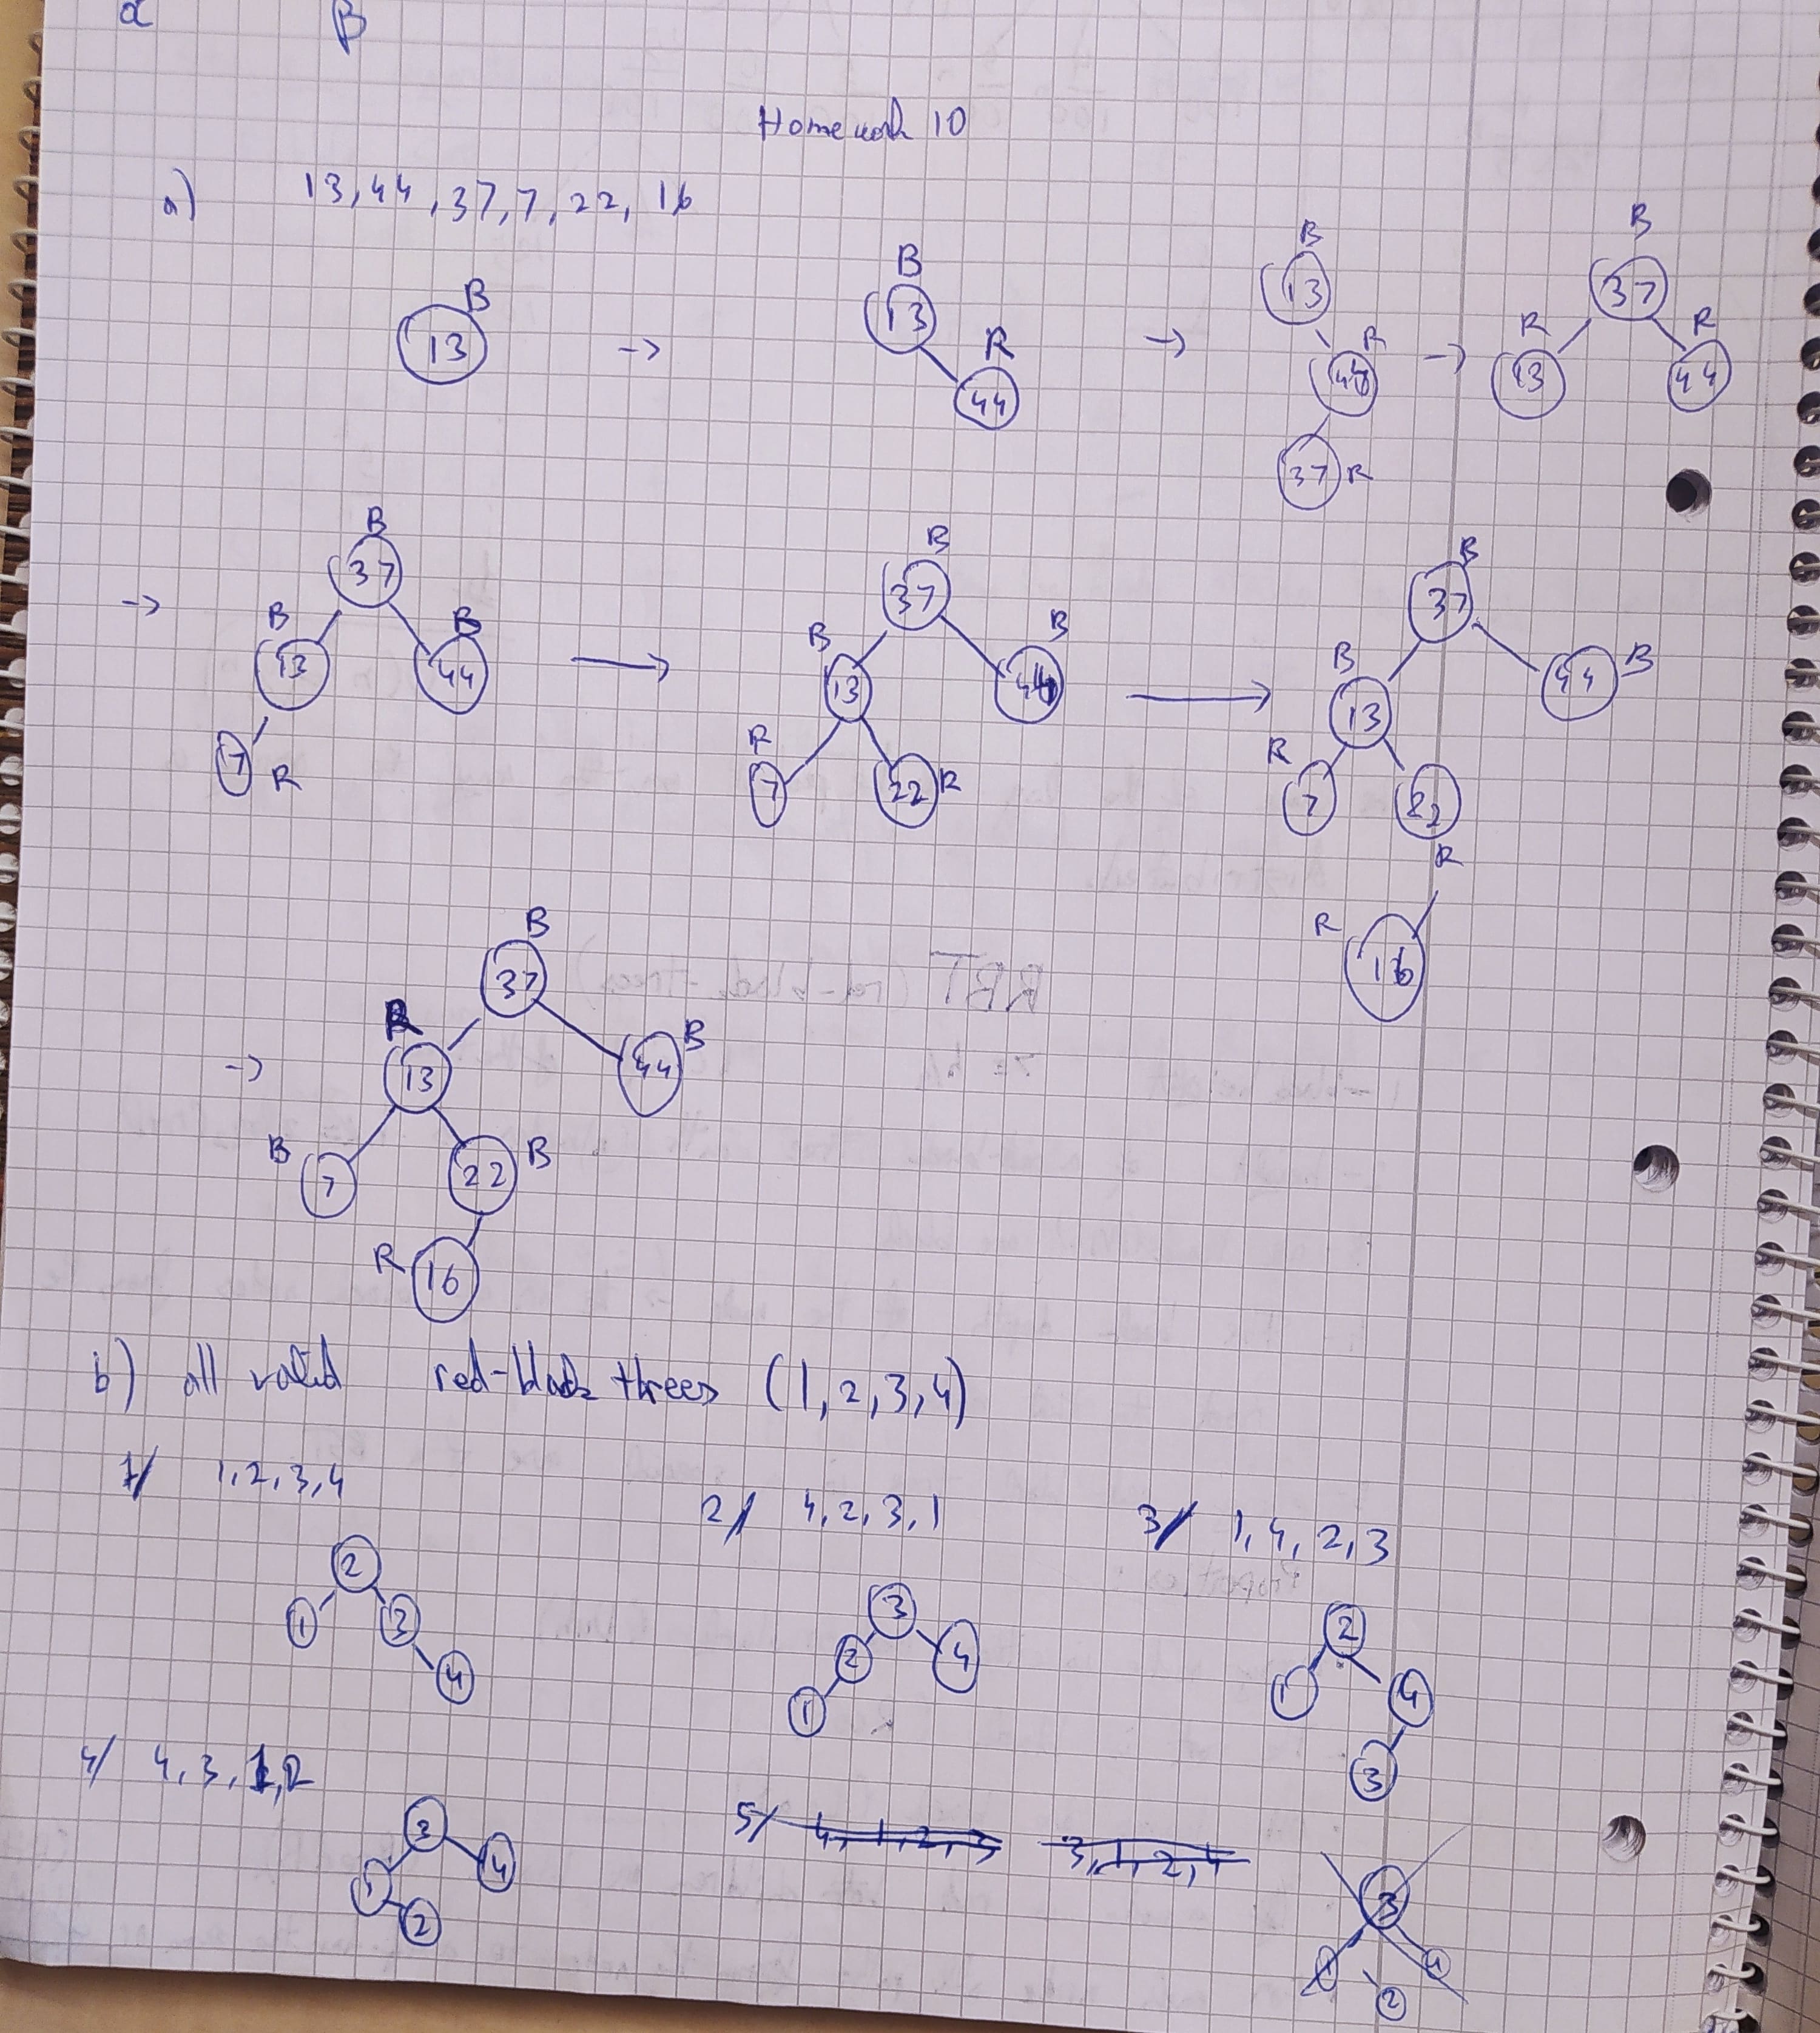 α β
Homework 10
a) 13, 44, 37, 7, 22, 16
B 13 → B 13 R 44 → B 13 R 44 37 R → B 37 R 13 R 44
→ B 37 B 13 B 44 7 R → B 37 B 13 B 44 R 7 22 R → B 37 B 13 44 B R 7 22 R R 16
→ B 37 R 13 44 B B 7 22 B R 16
b) all valid red-black threes (1, 2, 3, 4)
1/ 1, 2, 3, 4 2/ 4, 2, 3, 1 3/ 1, 4, 2, 3
2 1 3 4 3 2 4 1 2 1 4 3
4/ 4, 3, 1, 2 5/ 4, 1, 2, 3 3, 1, 2, 4
3 1 4 2 3 1 4 2